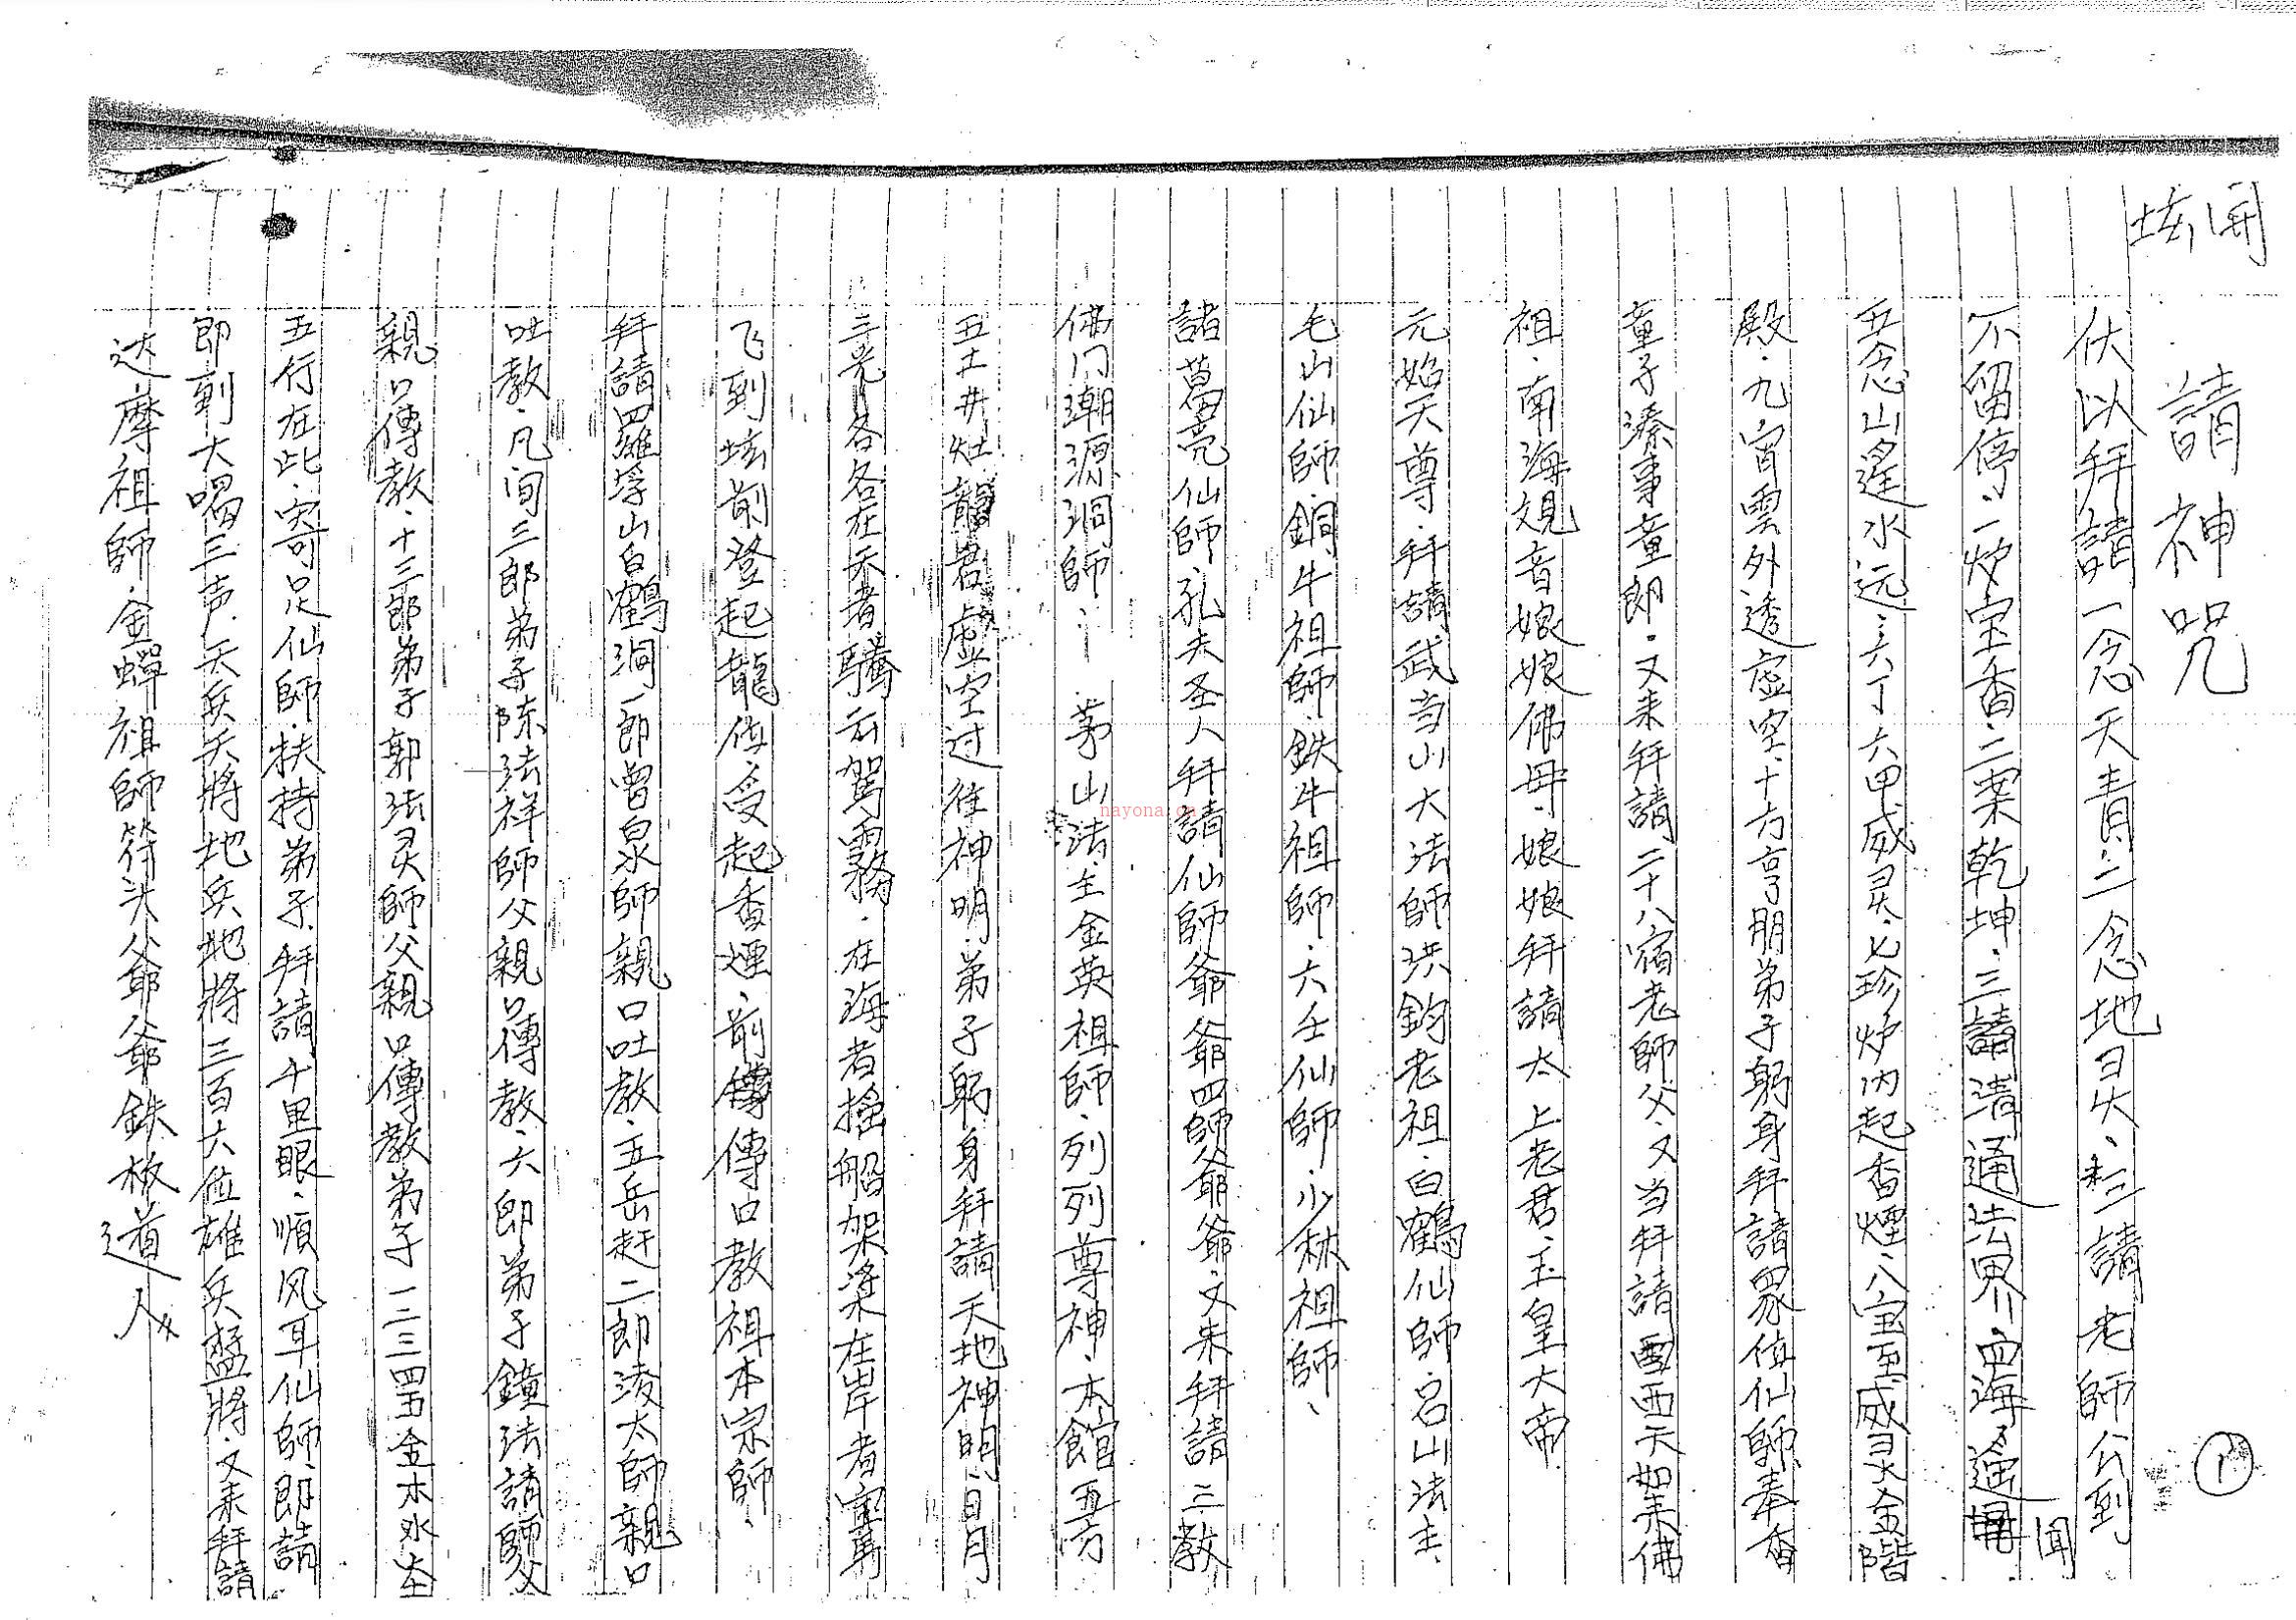 開坛
請神咒
①
伏以拜請一念天青二念地灵、三請老師公到
不留停、一炉宝香、二案乾坤、三請請通法界、四海通聞
五念山遙水远、六丁六甲威灵、七珍炉内起香煙、八宝至威灵金階
殿、九宵雲外透虚空、十方亨朋弟子躬身拜請眾位仙師奉香
童子溱事童郎、又来拜請二十八宿老師父、又当拜請西天如来佛
祖、南海观音娘娘佛母、娘娘拜請太上老君、玉皇大帝
元始天尊、拜請武当山大法師洪鈞老祖、白鶴仙師、吕山法主、
毛山仙師、銅牛祖師、鉄牛祖師、六壬仙師、少林祖師、
諸葛亮仙師、孔夫圣人拜請仙師爺爺四師父爺爺、又来拜請三教
佛门潮源洞師、茅山法主金英祖師、列列尊神、本館五方
五土井灶龍君虚空过往神明、弟子躬身拜請天地神明、日月
三光各各在天者騰云驾霧、在海者撐船架桨在岸者
飞到坛前登起龍位、受起香煙、前傳口教祖本宗師、
拜請羅浮山白鶴洞一郎曾泉師親口吐教、五岳赶二郎淩太師親口
吐教、凡间三郎弟子陈法祥師父親口傳教、六郎弟子鐘法請師父
親口傳教、十三郎弟子郭法灵師父親口傳教弟子一二三四五金木水
五行在此、寄足仙師、扶持弟子、拜請千里眼、順风耳仙師、即請
即到大喝三声、天兵天將地兵地將三百大位雄兵猛將、又来拜請
达摩祖師、金蟬祖師符头父爺爺鉄板道人
nayona.cn